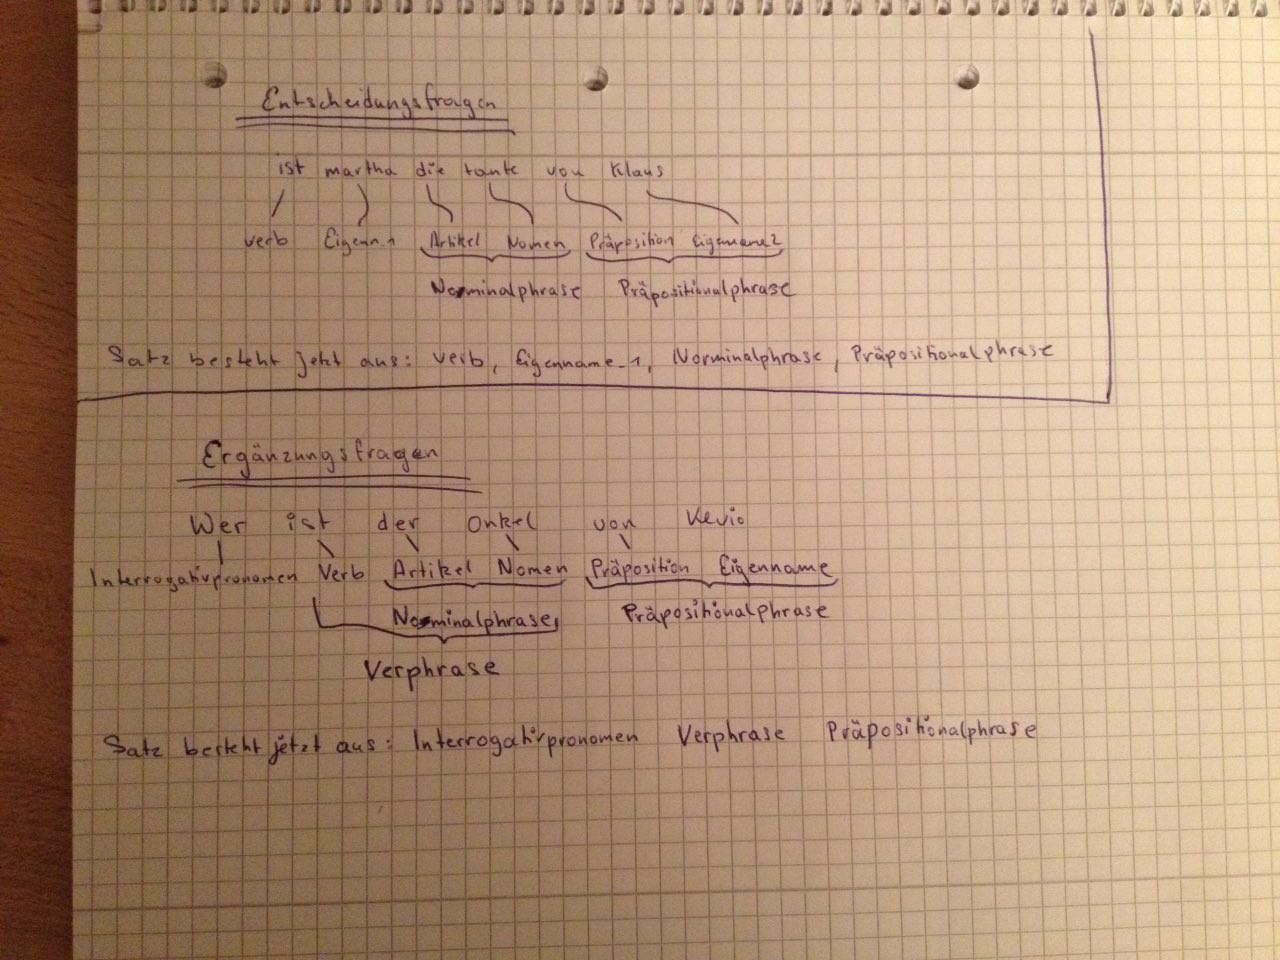 Entscheidungsfragen
ist martha die tante von Klaus
verb Eigenn_1 Artikel Nomen Präposition Eigenname2
Norminalphrase Präpositionalphrase
Satz besteht jetzt aus: verb, Eigenname_1, Norminalphrase, Präpositionalphrase
Ergänzungsfragen
Wer ist der Onkel von Kevio
Interrogativpronomen Verb Artikel Nomen Präposition Eigenname
Norminalphrase Präpositionalphrase
Verphrase
Satz besteht jetzt aus: Interrogativpronomen Verphrase Präpositionalphrase